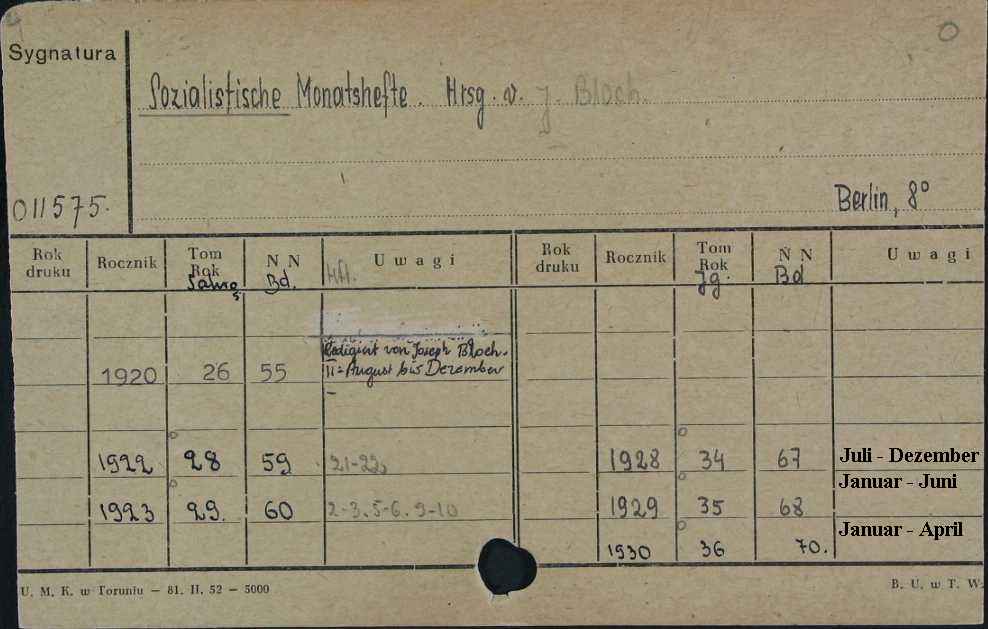 Sygnatura
Sozialistische Monatshefte. Hrsg. v. J. Bloch.
011575.
Berlin, 8°
Rok druku Rocznik Tom Rok N N Bd. Uwagi Hft. Rok druku Rocznik Tom Rok Jg. N N Bd Uwagi
Redigiert von Joseph Bloch.
1920 26 55 II = August bis Dezember
1922 28 59 21-22, 1928 34 67 Juli - Dezember
Januar - Juni
1923 29. 60 2-3. 5-6. 9-10 1929 35 68
Januar - April
1930 36 70.
U. M. K. w Toruniu — 81. II. 52 — 5000
B. U. w T. W.